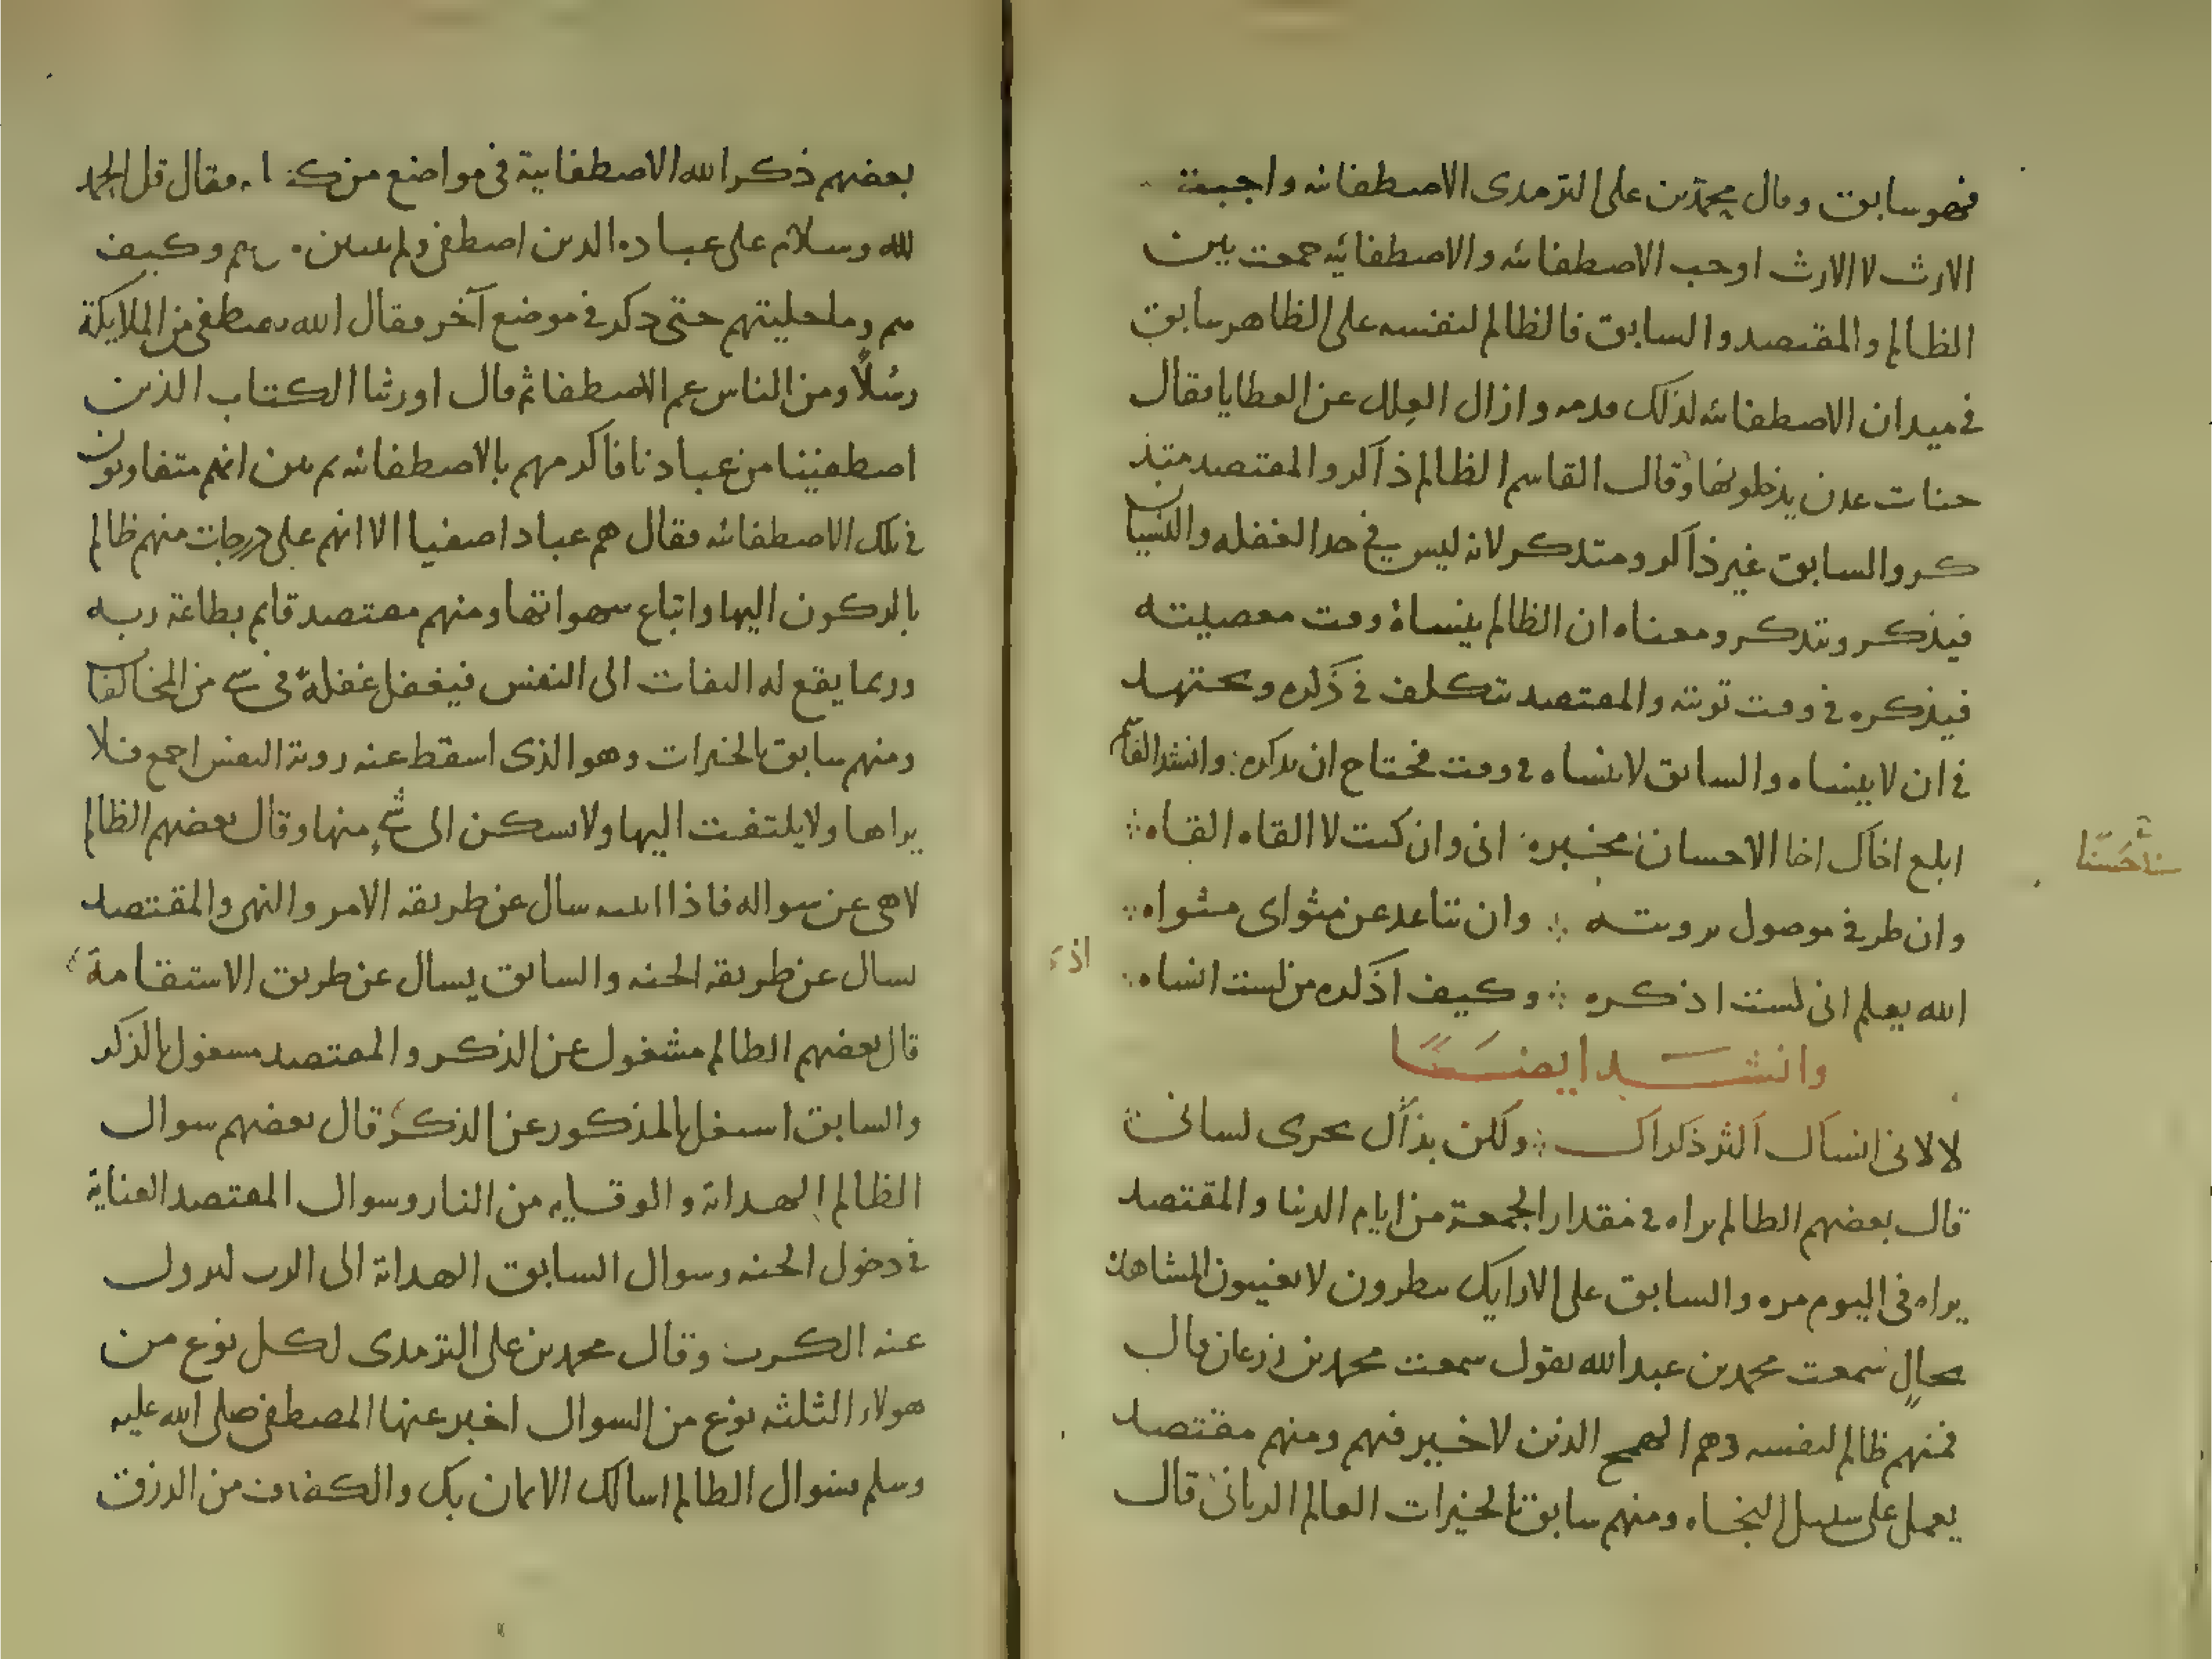 فهو سابق وقال محمد بن على الترمدى الاصطفائه واجبة
الارث لا الارث اوجب الاصطفائه والاصطفائيه جمعت بين
الظالم والمقتصد والسابق فالظالم لنفسه على الظاهر سابق
في ميدان الاصطفائه لذلك قدمه وازال العلل عن العطايا فقال
جنات عدن يدخلونها وقال القاسم الظالم ذاكر والمقتصد متذ
كر والسابق غير ذاكر ومتدكر لانه ليس في حد الغفله والنسيان
فيذكر ويتدكر ومعناه ان الظالم ينساه وقت معصيته
فيذكره في وقت توبته والمقتصد يتكلف في ذكره ويجتهد
في ان لا ينساه والسابق لا ينساه في وقت فيحتاج ان يدكره وانشد القاسم
ابلع اخاك اخا الاحسان مخبره انى وان كنت لا القاه القاه
وان طرفي موصول برويته وان تباعد عن مثواى مثواه
الله يعلم انى لست اذكره وكيف اذكره من لست انساه
وانشد ايضــا
لا لانى انساك اكثر ذكراك ولكن بذاك يجرى لسانى
قال بعضهم الظالم يراه في مقدار الجمعة من ايام الدنيا والمقتصد
يراه فى اليوم مره والسابق على الارايك ينظرون لا يغيبون المشاهدة
بحال سمعت محمد بن عبد الله يقول سمعت محمد بن قال
فمنهم ظالم لنفسه وهم الهمج الذين لا خير فيهم ومنهم مقتصد
يعمل على سبيل النجاه ومنهم سابق بالخيرات العالم الربانى قال
بعضهم ذكر الله الاصطفايية فى مواضع من فقال قل الحمد
لله وسلام على عباده الدين اصطفى ولم يبين وكيف
هم وما حليتهم حتى دكر في موضع آخر فقال الله يصطفى من الملايكة
رسلًا ومن الناس عم الاصطفا ثم قال اورثنا الكتاب الذين
اصطفينا من عبادنا فاكرمهم بالاصطفائه ثم بين انهم متفاوتون
في تلك الاصطفائه فقال هم عباد اصفيا الا انهم على درجات منهم ظالم
بالركون اليها واتباع شهواتها ومنهم مقتصد قايم بطاعة ربه
وربما يقع له التفات الى النفس فيغفل غفلة فى شى من المخالفا
ومنهم سابق بالخيرات وهو الذى اسقط عنه روية النفس اجمع فلا
يراها ولا يلتفت اليها ولا يسكن الى شىء منها وقال بعضهم الظالم
لاهى عن سواله فاذا انتبه سال عن طريقه الامر والنهى والمقتصد
يسال عن طريقه الجنه والسابق يسال عن طريق الاستقامة
قال بعضهم الظالم مشغول عن الذكر والمقتصد مشغول بالذكر
والسابق اشتغل بالمذكور عن الذكر قال بعضهم سوال
الظالم الهداية والوقايه من النار وسوال المقتصد العناية
في دخول الجنه وسوال السابق الهداية الى الرب ليزول
عنه الكرب وقال محمد بن على الترمدى لكل نوع من
هولاء الثلثه نوع من السوال اخبر عنها المصطفى صلى الله عليه
وسلم فسوال الظالم اسالك الايمان بك والكفاف من الرزق